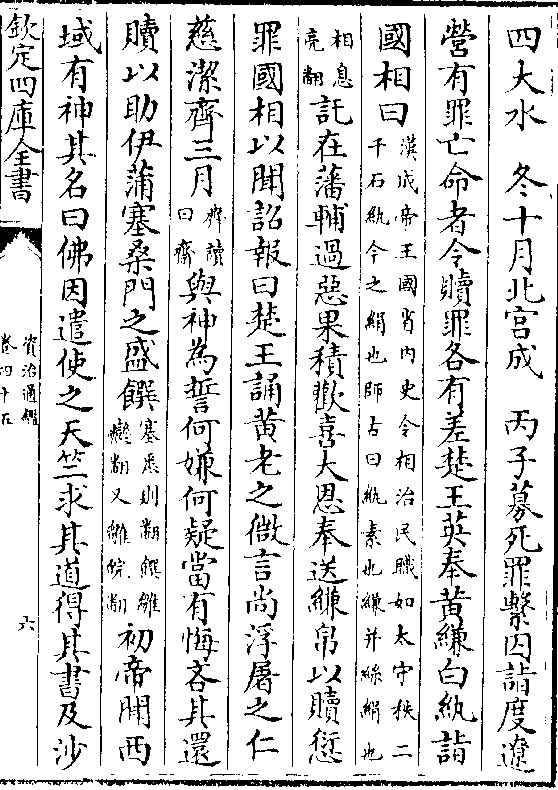 四大水　冬十月北宮成　丙子募死罪繫囚詣度遼
營有罪亡命者令贖罪各有差楚王英奉黃縑白紈詣
國相曰漢成帝王國省内史令相治民職如太守秩二
千石紈今之絹也師古曰紈素也縑并絲絹也
相息
亮翻託在藩輔過惡累積歡喜大恩奉送縑帛以贖愆
罪國相以聞詔報曰楚王誦黃老之微言尚浮屠之仁
慈潔齊三月齊讀
曰齋與神為誓何嫌何疑當有悔吝其還
贖以助伊蒲塞桑門之盛饌塞悉則翻饌雛
戀翻又雛皖翻初帝聞西
域有神其名曰佛因遣使之天竺求其道得其書及沙
欽定四庫全書
資治通鑑
卷四十五
六